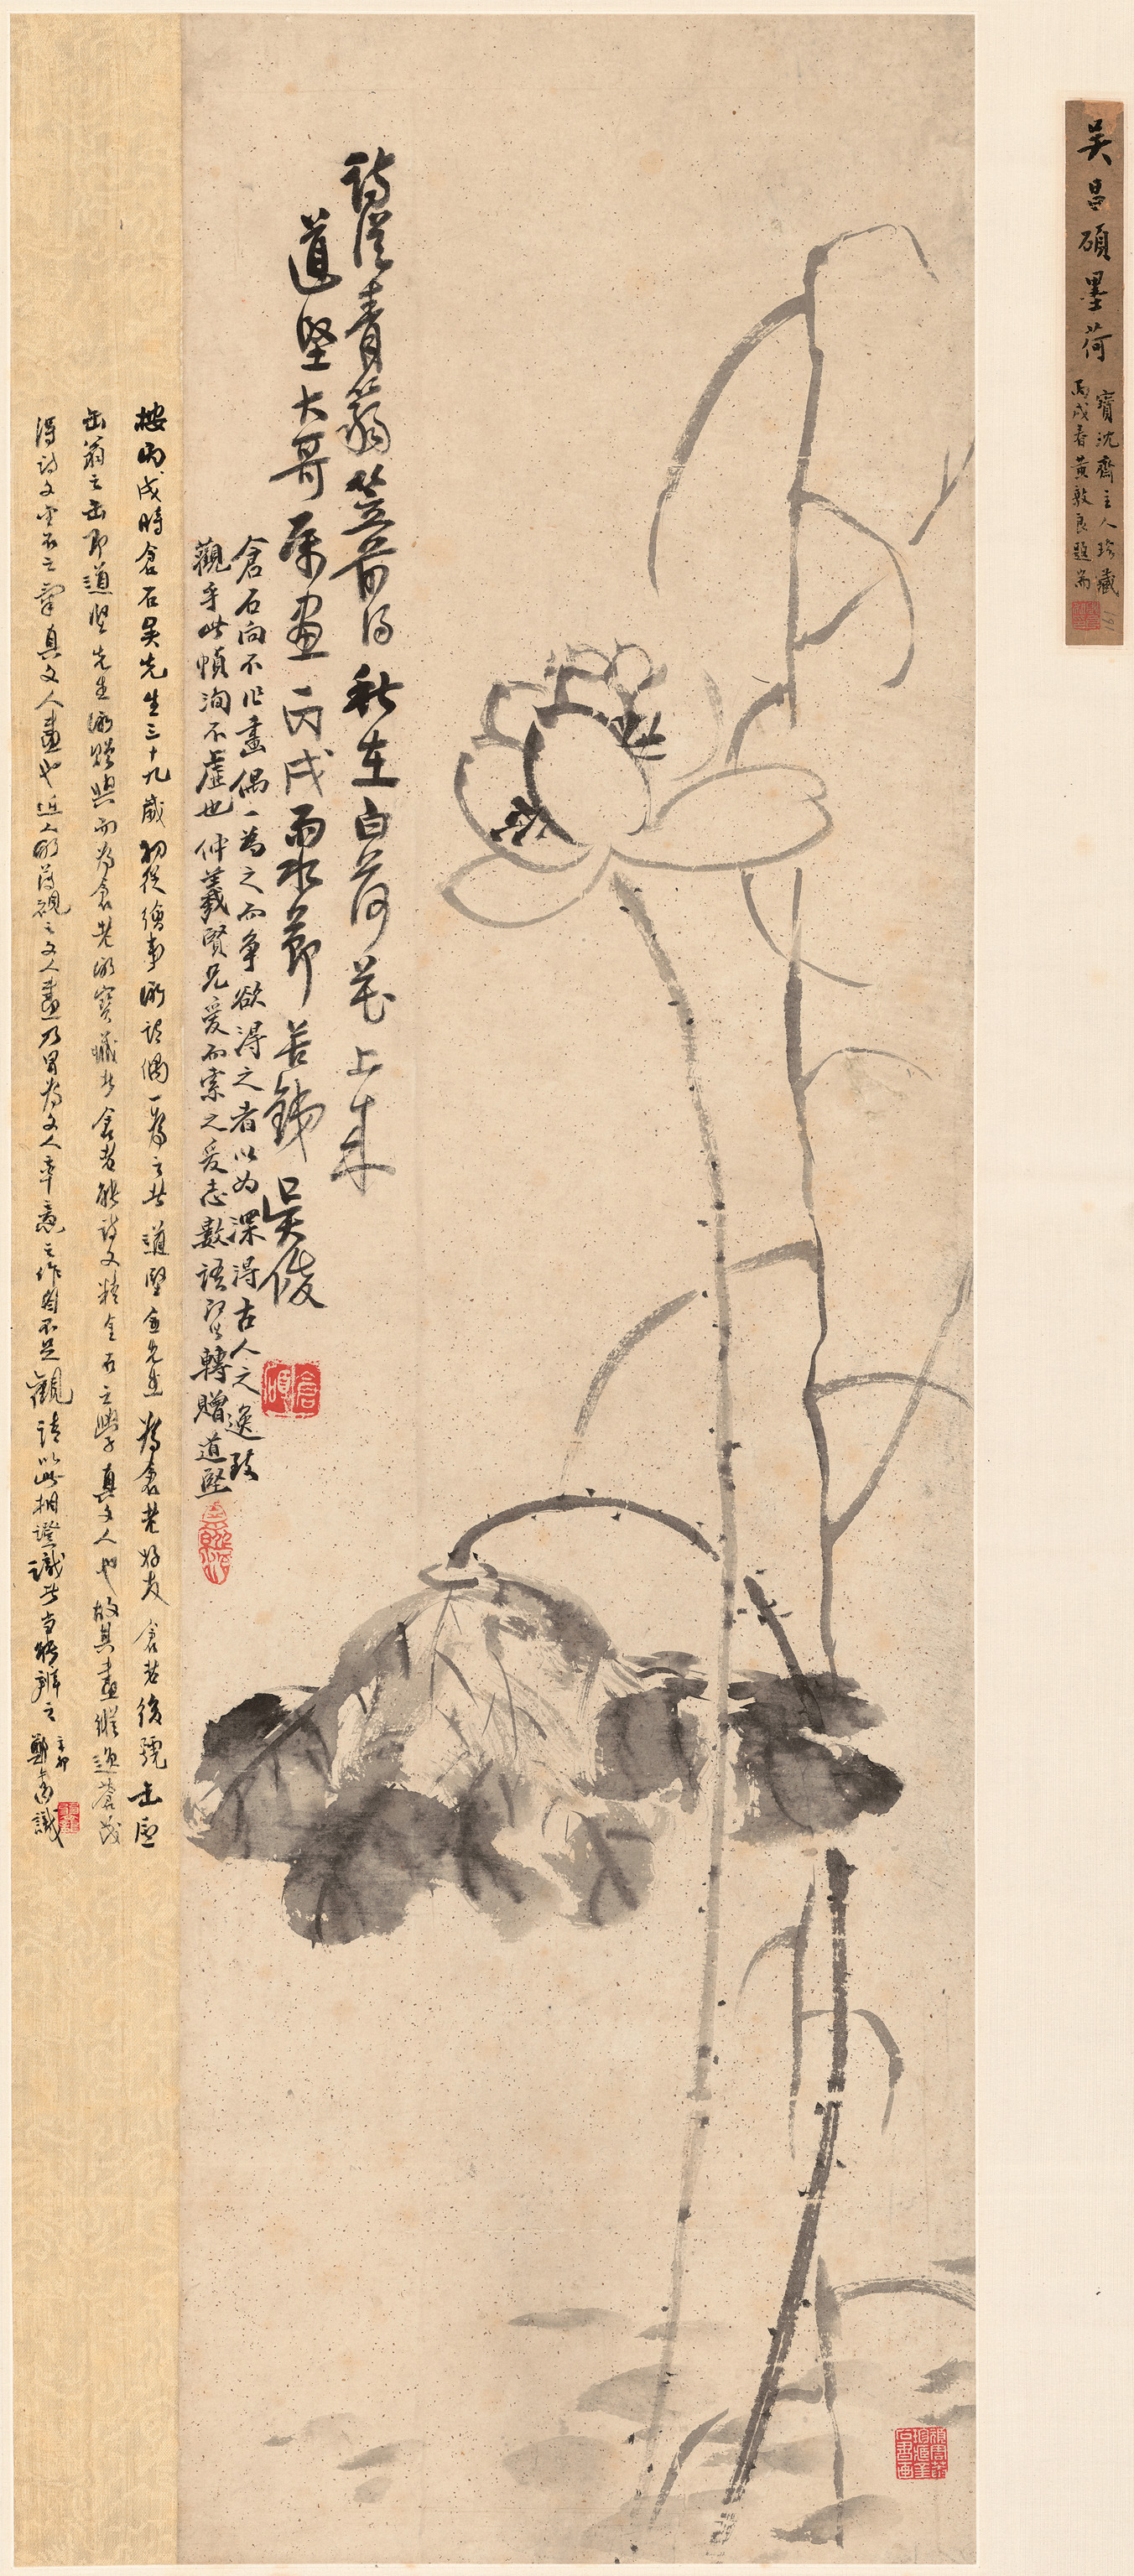 吴昌碩墨荷
寶沈齋主人珍藏
丙戌春黄敦良題耑
詩從青蒻笠前得秋在白荷花上來
道堅大哥屬畫丙戌雨水節苦鐵吳俊
倉石向不作畫偶一為之而爭欲得之者以为深得古人之逸致
觀乎此幀洵不虛也仲羲賢兄愛而索之爰志數語以轉贈道堅
按丙戌時倉石吴先生三十九歲初從繪事所謂偶一為之者道堅金先生為倉老好友倉老後號缶廬
缶翁之缶即道堅先生所贈與而為倉老所寶藏者倉老能詩文精金石之學真文人也故其畫縱逸蒼茂
得詩文金石之氣真文人畫也近人 視之文人畫乃冒為文人率意之作自不足觀請以此相證識者當能辨之
辛卯鄭 識
倉碩